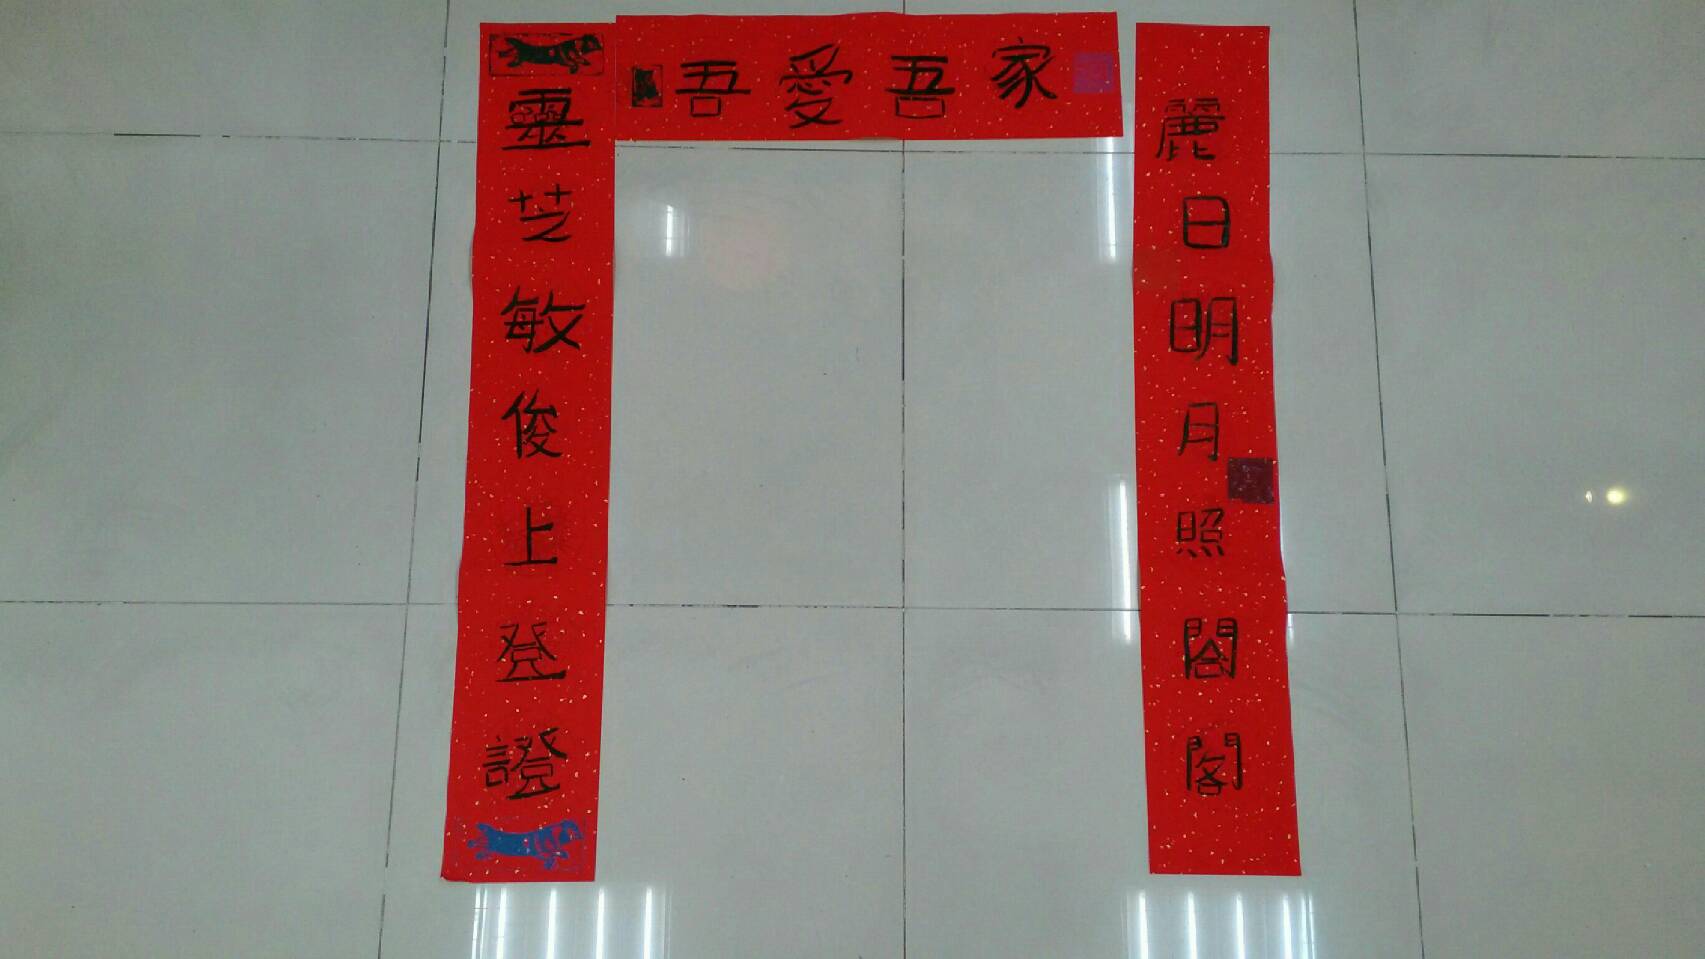 吾愛吾家
麗日明月照閤閣
靈芝敏俊上登證